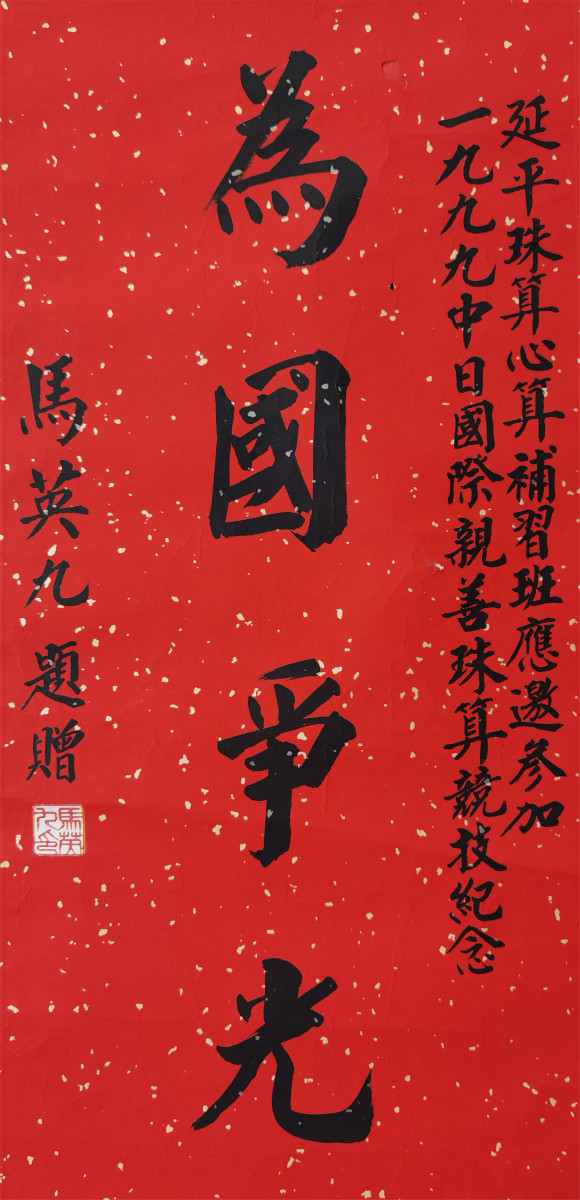 延平珠算心算補習班應邀參加
一九九九中日國際親善珠算競技紀念
為國爭光
馬英九題贈
馬英九印